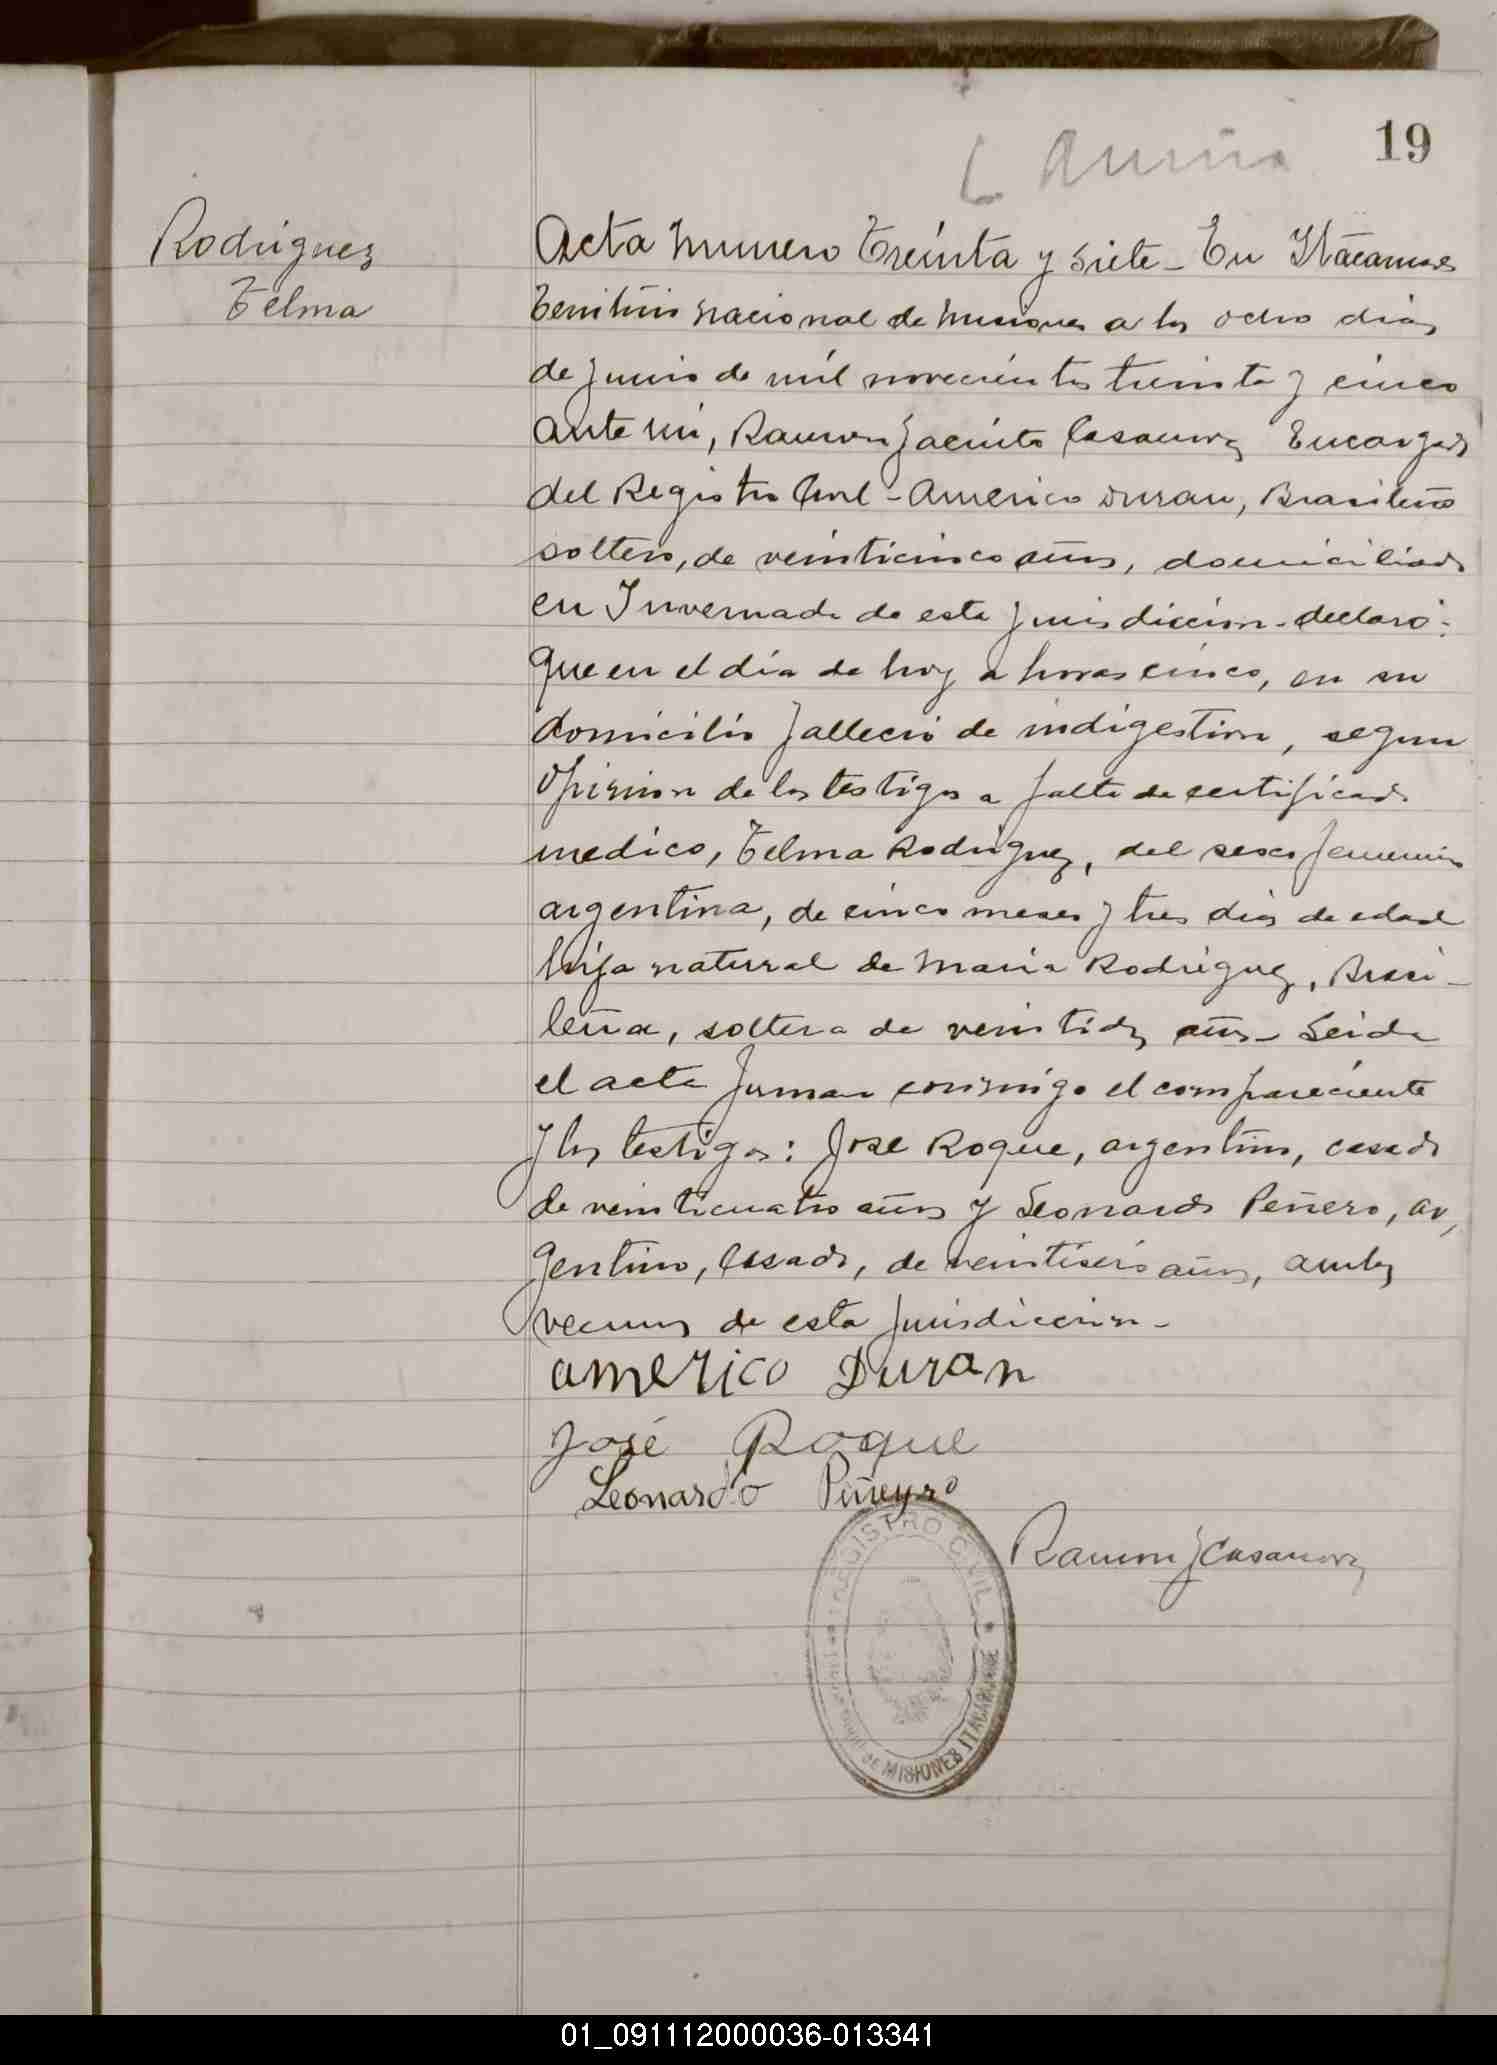 19
Rodriguez
Telma
Acta numero Treinta y siete_ En Itacaruare
Territorio nacional de Misiones a los ocho dias
de junio de mil novecientos treinta y cinco
ante mi, Ramon Jacinto Casanova Encargado
del Registro Civil - Americo Duran, Brasileño
soltero, de veinticinco años, domiciliado
en Invernada de esta jurisdiccion - declaró:
Que en el dia de hoy a horas cinco, en su
domicilio falleció de indigestion, segun
opinion de los testigos a falta de certificado
medico, Telma Rodriguez, del sexo femenino
argentina, de cinco meses y tres dias de edad
hija natural de Maria Rodriguez, Brasi-
leña, soltera de veintidos años_ Leida
el acta firman conmigo el compareciente
y los testigos: Jose Roque, argentino, casado
de veinticuatro años y Leonardo Peñero, ar,
gentino, casado, de veintiseis años, ambos
vecinos de esta jurisdiccion_
americo Duran
José Roque
Leonardo Piñeyro
Ramon J Casanova
REGISTRO CIVIL * DE MISIONES ITACARUARE
01_091112000036-013341